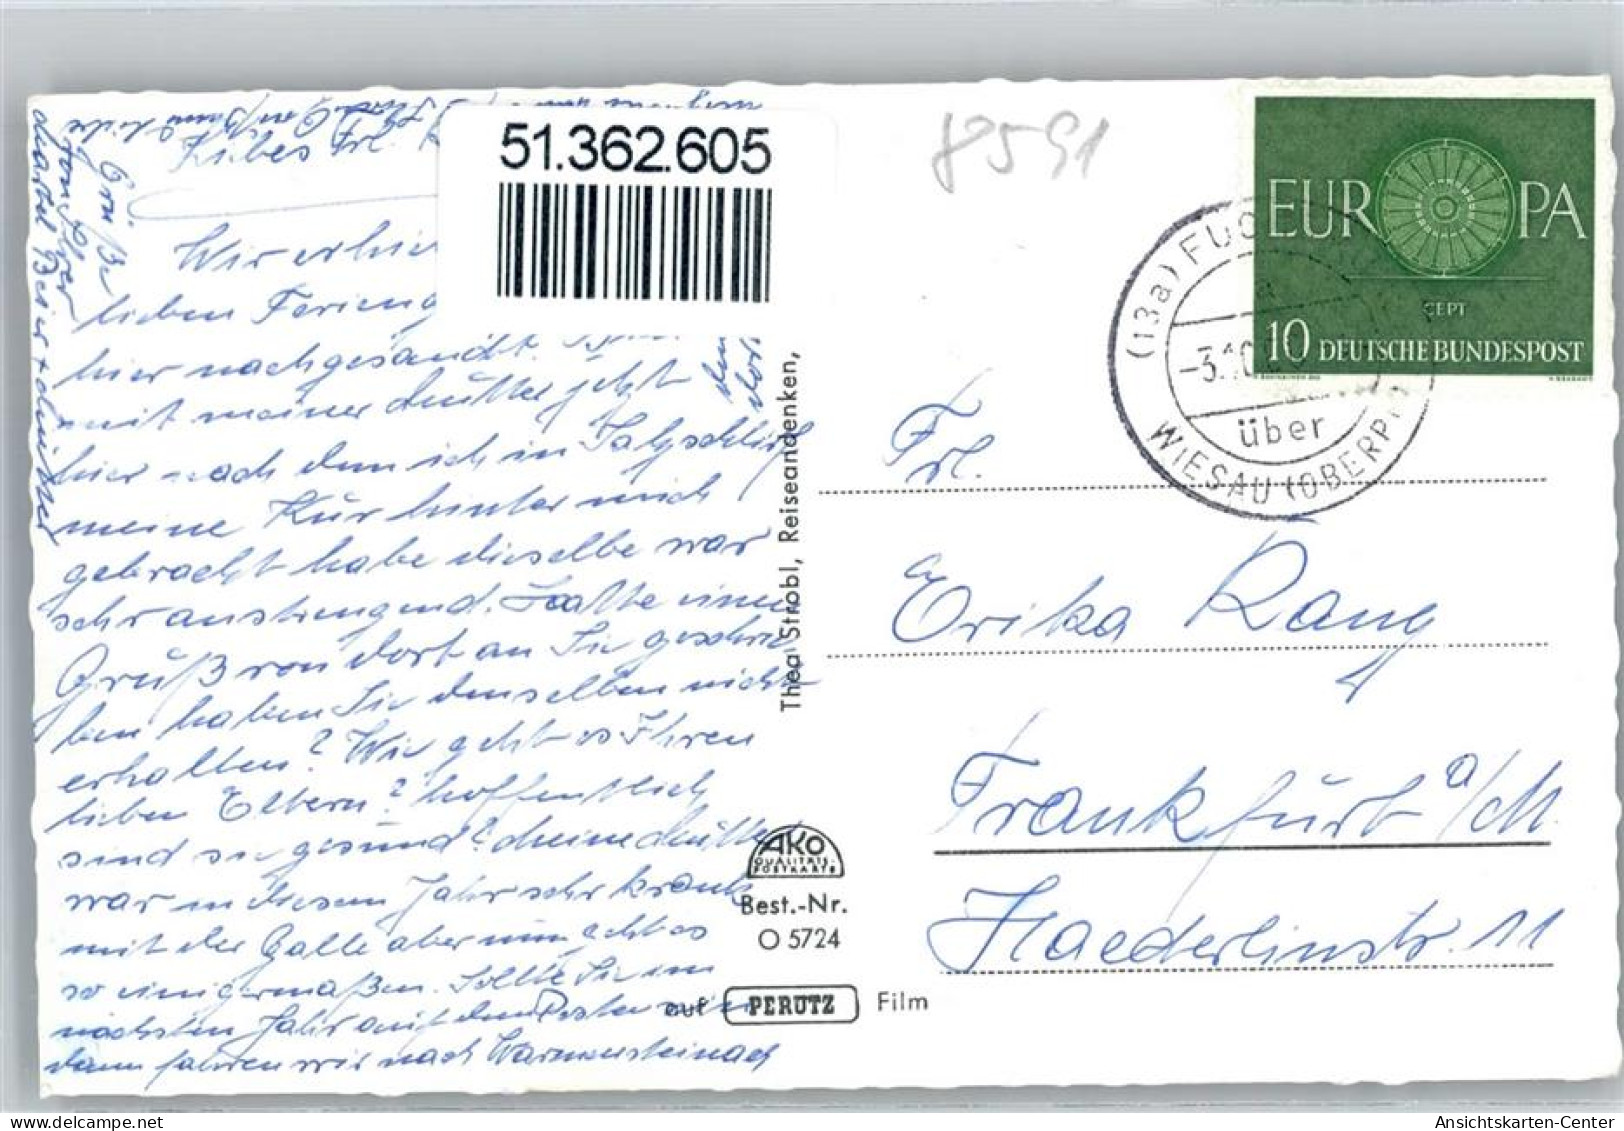 51.362.605
8591
EUROPA
CEPT
10 DEUTSCHE BUNDESPOST
(13a) FUC
-3.10.6
über
WIESAU (OBERPF
Liebes Frl.
Wir erhie
lieben Ferieng
hier nachgesandt.
mit meiner Mutter jetzt
hier nach dem ich in Salzschlirf
meine Kur hinter mich
gebracht habe dieselbe war
sehr anstrengend. Hatte einen
Gruß von dort an Sie geschrie
ben haben Sie denselben nicht
erhalten? Wie geht es Ihren
lieben Eltern? hoffentlich
sind sie gesund? Meine Mutter
war in diesem Jahr sehr krank
mit der Galle aber nun geht es
so einigermaßen. Sollte Sie im
nächsten Jahr auf dem Posten sein
dann fahren wir nach Warmensteinach
Grüße
von Ihrer
Thea Strobl, Reiseandenken,
AKO
QUALITÄTS-
POSTKARTE
Best.-Nr.
O 5724
auf PERUTZ Film
Frl.
Erika Rang
Frankfurt a/M.
Haederlinstr. 11
Ansichtskarten-Center